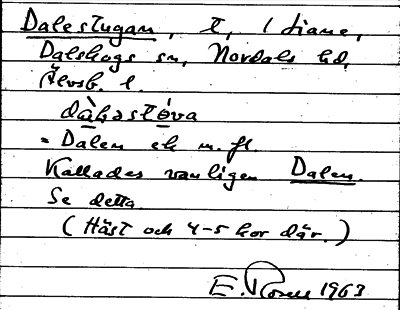 Dalestugan, t, i Liane,
Dalskogs sn, Nordals hd,
Älvsb. l.
dàlɜstóva
= Dalen ek m. fl.
Kallades vanligen Dalen.
Se detta.
(Häst och 4-5 kor där.)
E. Rosell 1963